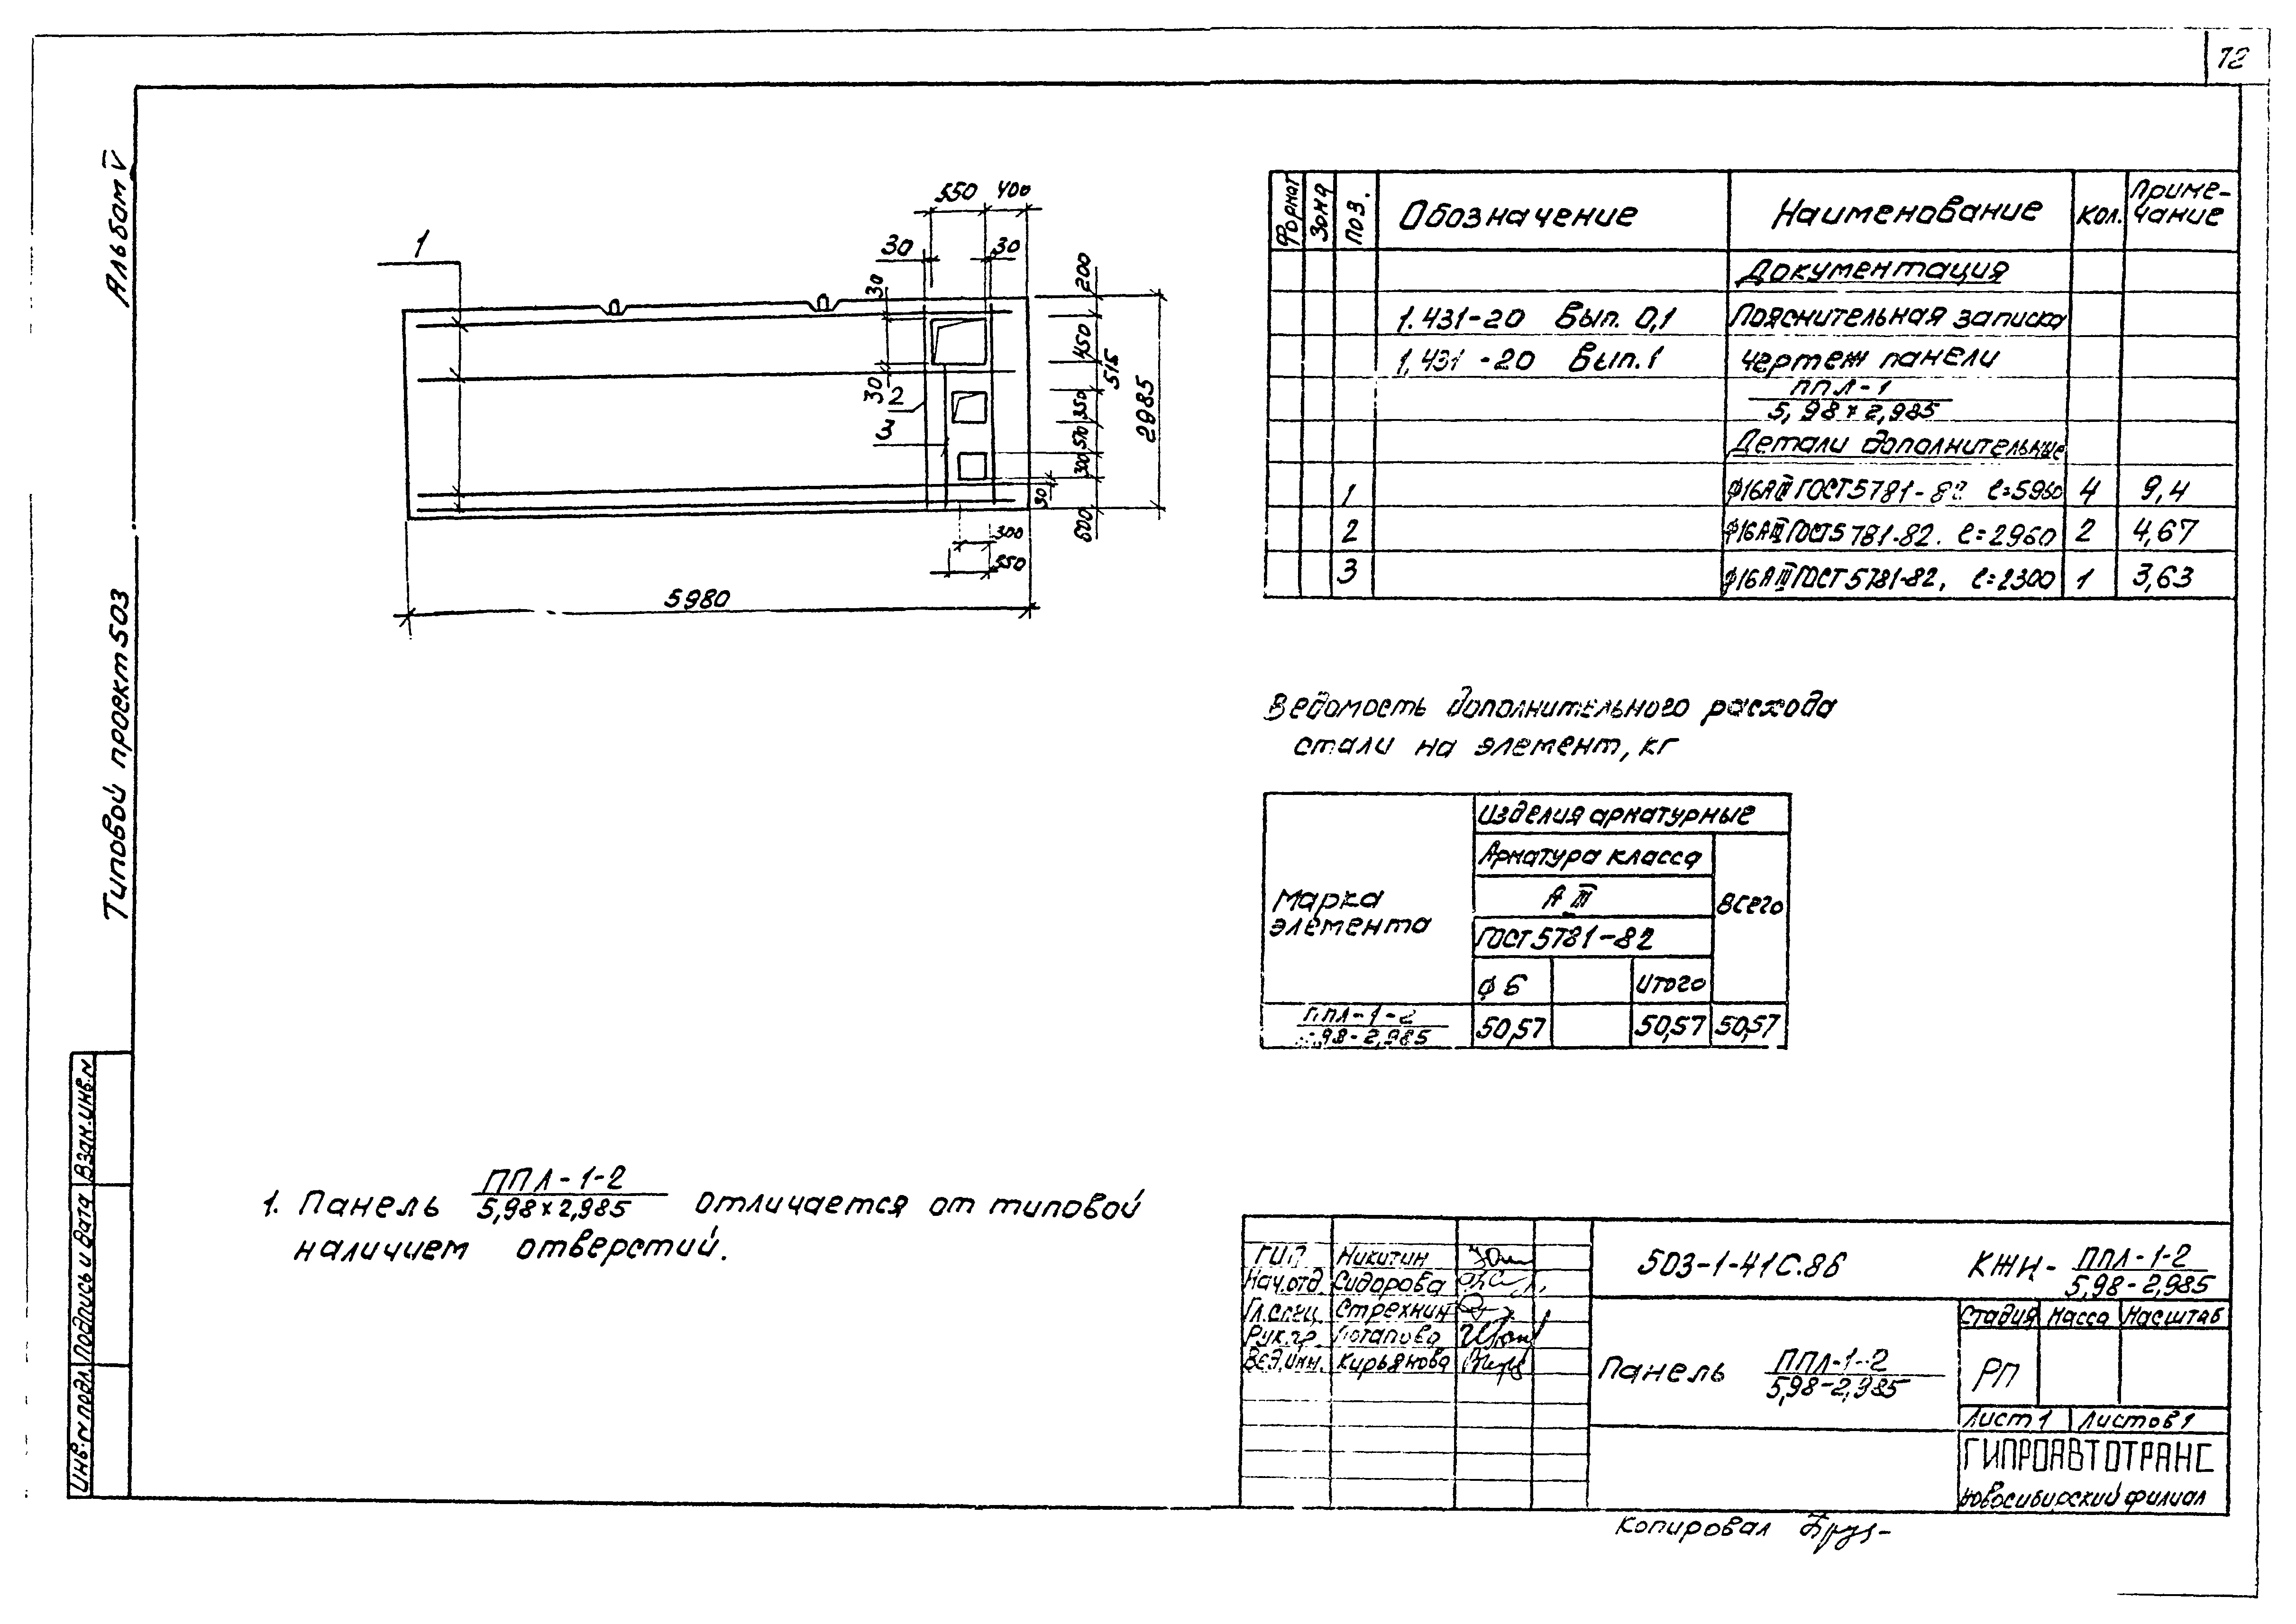 72
Альбом V
Типовой проект 503
Взам.инв.N
Подпись и дата
Инв.N подл.
550 400
30 30
1
30
200
450
515
2985
30
2
350
3
570
300
30
600
300
350
5980
Формат Зона Поз. Обозначение Наименование Кол. Приме-
чание
Документация
1.431-20 Вып. 0,1 Пояснительная записка
1.431-20 Вып.1 чертеж панели
ППЛ-1
5,98×2,985
Детали дополнительные
1 ф16АIII ГОСТ5781-82 ℓ=5960 4 9,4
2 ф16АIII ГОСТ5781-82. ℓ=2960 2 4,67
3 ф16АIII ГОСТ5781-82, ℓ=2300 1 3,63
Ведомость дополнительного расхода
стали на элемент, кг
Марка
элемента
Изделия арматурные
Арматура класса
А III
ГОСТ5781-82
ф6 Итого
Всего
ППЛ-1-2
,98-2,985
50,57 50,57 50,57
1. Панель ППЛ-1-2
5,98×2,985 отличается от типовой
наличием отверстий.
ГИП Никитин
Нач.отд. Сидорова
Гл.спец. Стрехнин
Рук.гр. Потапова
Вед.инж. Кирьянова
503-1-41С.86 КЖИ- ППЛ-1-2
5,98-2,985
Панель ППЛ-1-2
5,98-2,985
Стадия Масса Масштаб
РП
Лист 1 Листов 1
ГИПРОАВТОТРАНС
Новосибирский филиал
Копировал